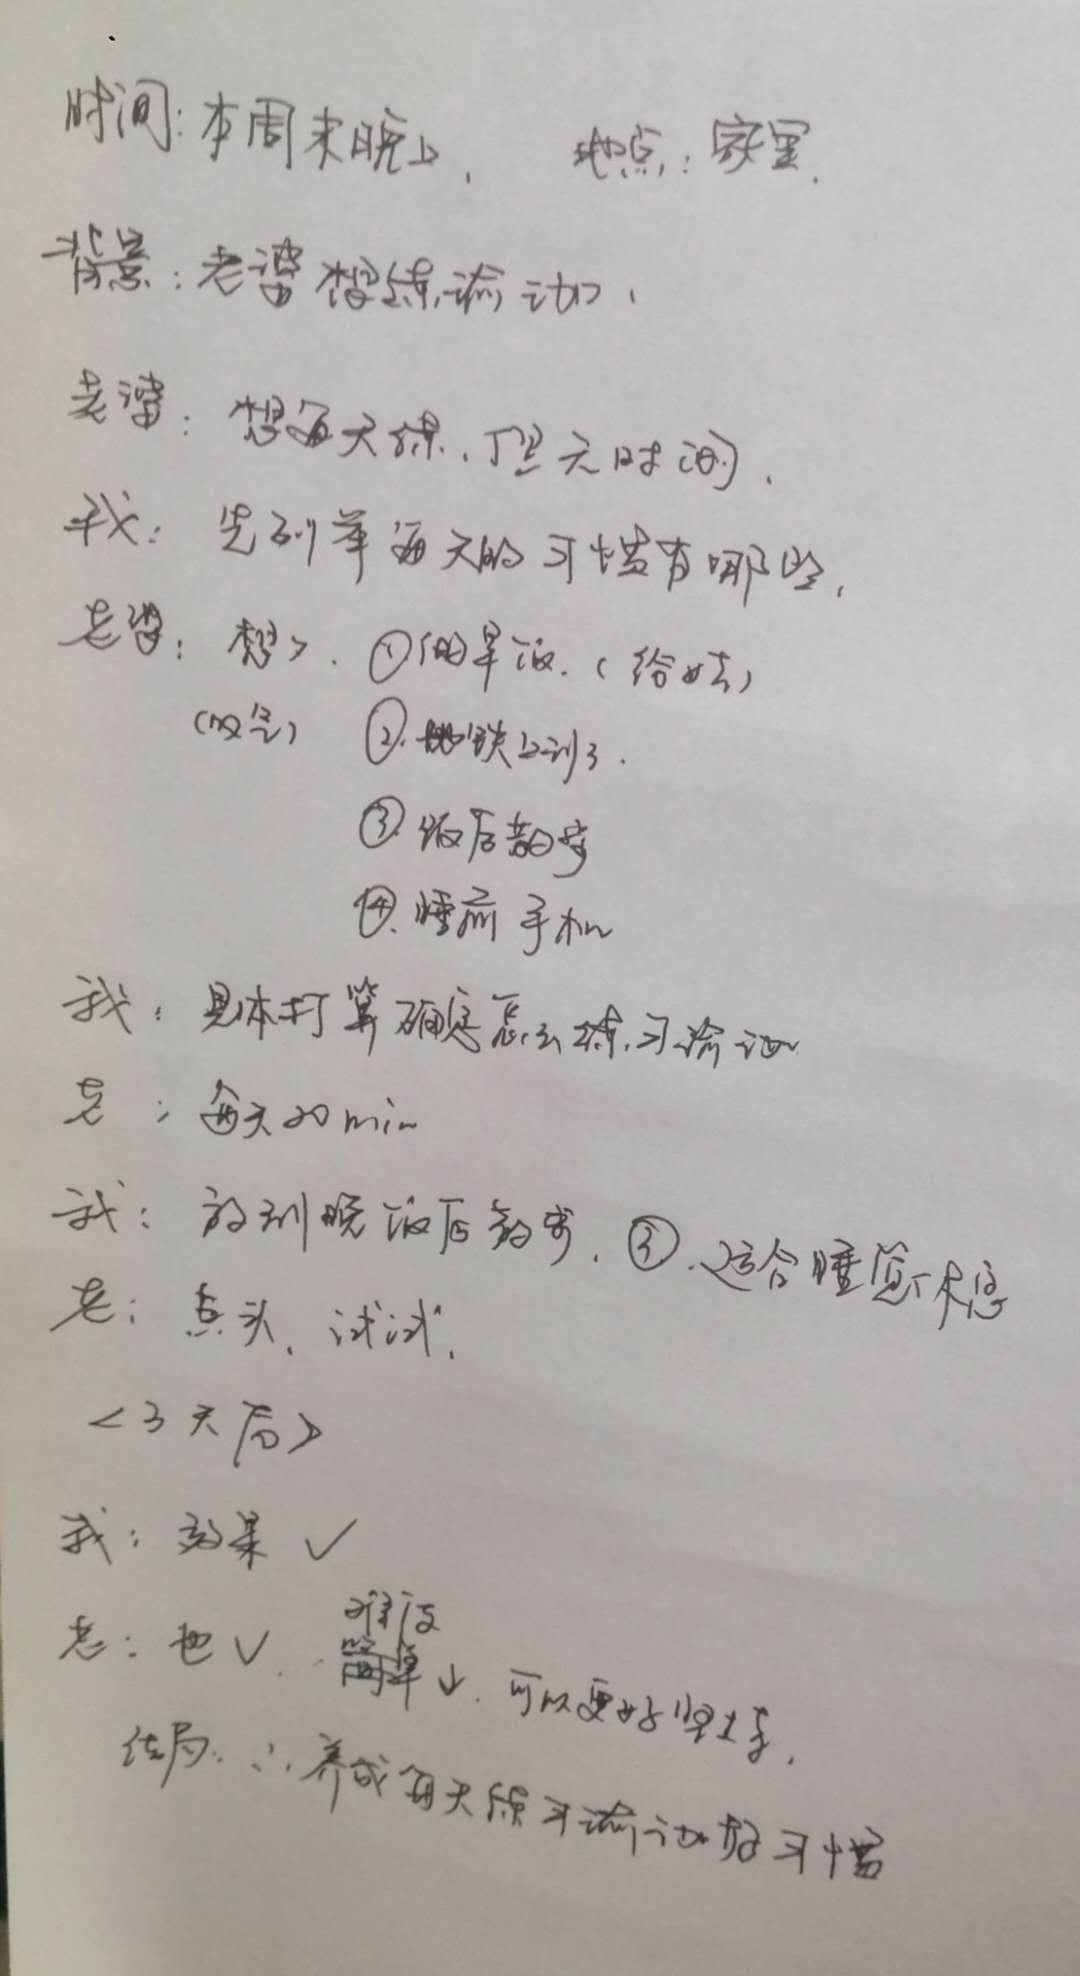 时间：本周末晚上， 地点：家里.
背景：老婆想练瑜讪，
老婆：想每天练，但无时间.
我：先列举每天的习惯有哪些，
老婆：想> . ①做早饭.（给娃）
（叹气） ②.地铁上到了.
③.饭后散步
④.睡前手机
我：具体打算确定怎么练习瑜讪
老：每天20min
我：放到晚饭后散步. ③.适合睡觉休息
老：点头，试试.
<3天后>
我：效果√
难度
老：也√. 简单↓. 可以更好坚持.
结局：∴养成每天练习瑜讪好习惯